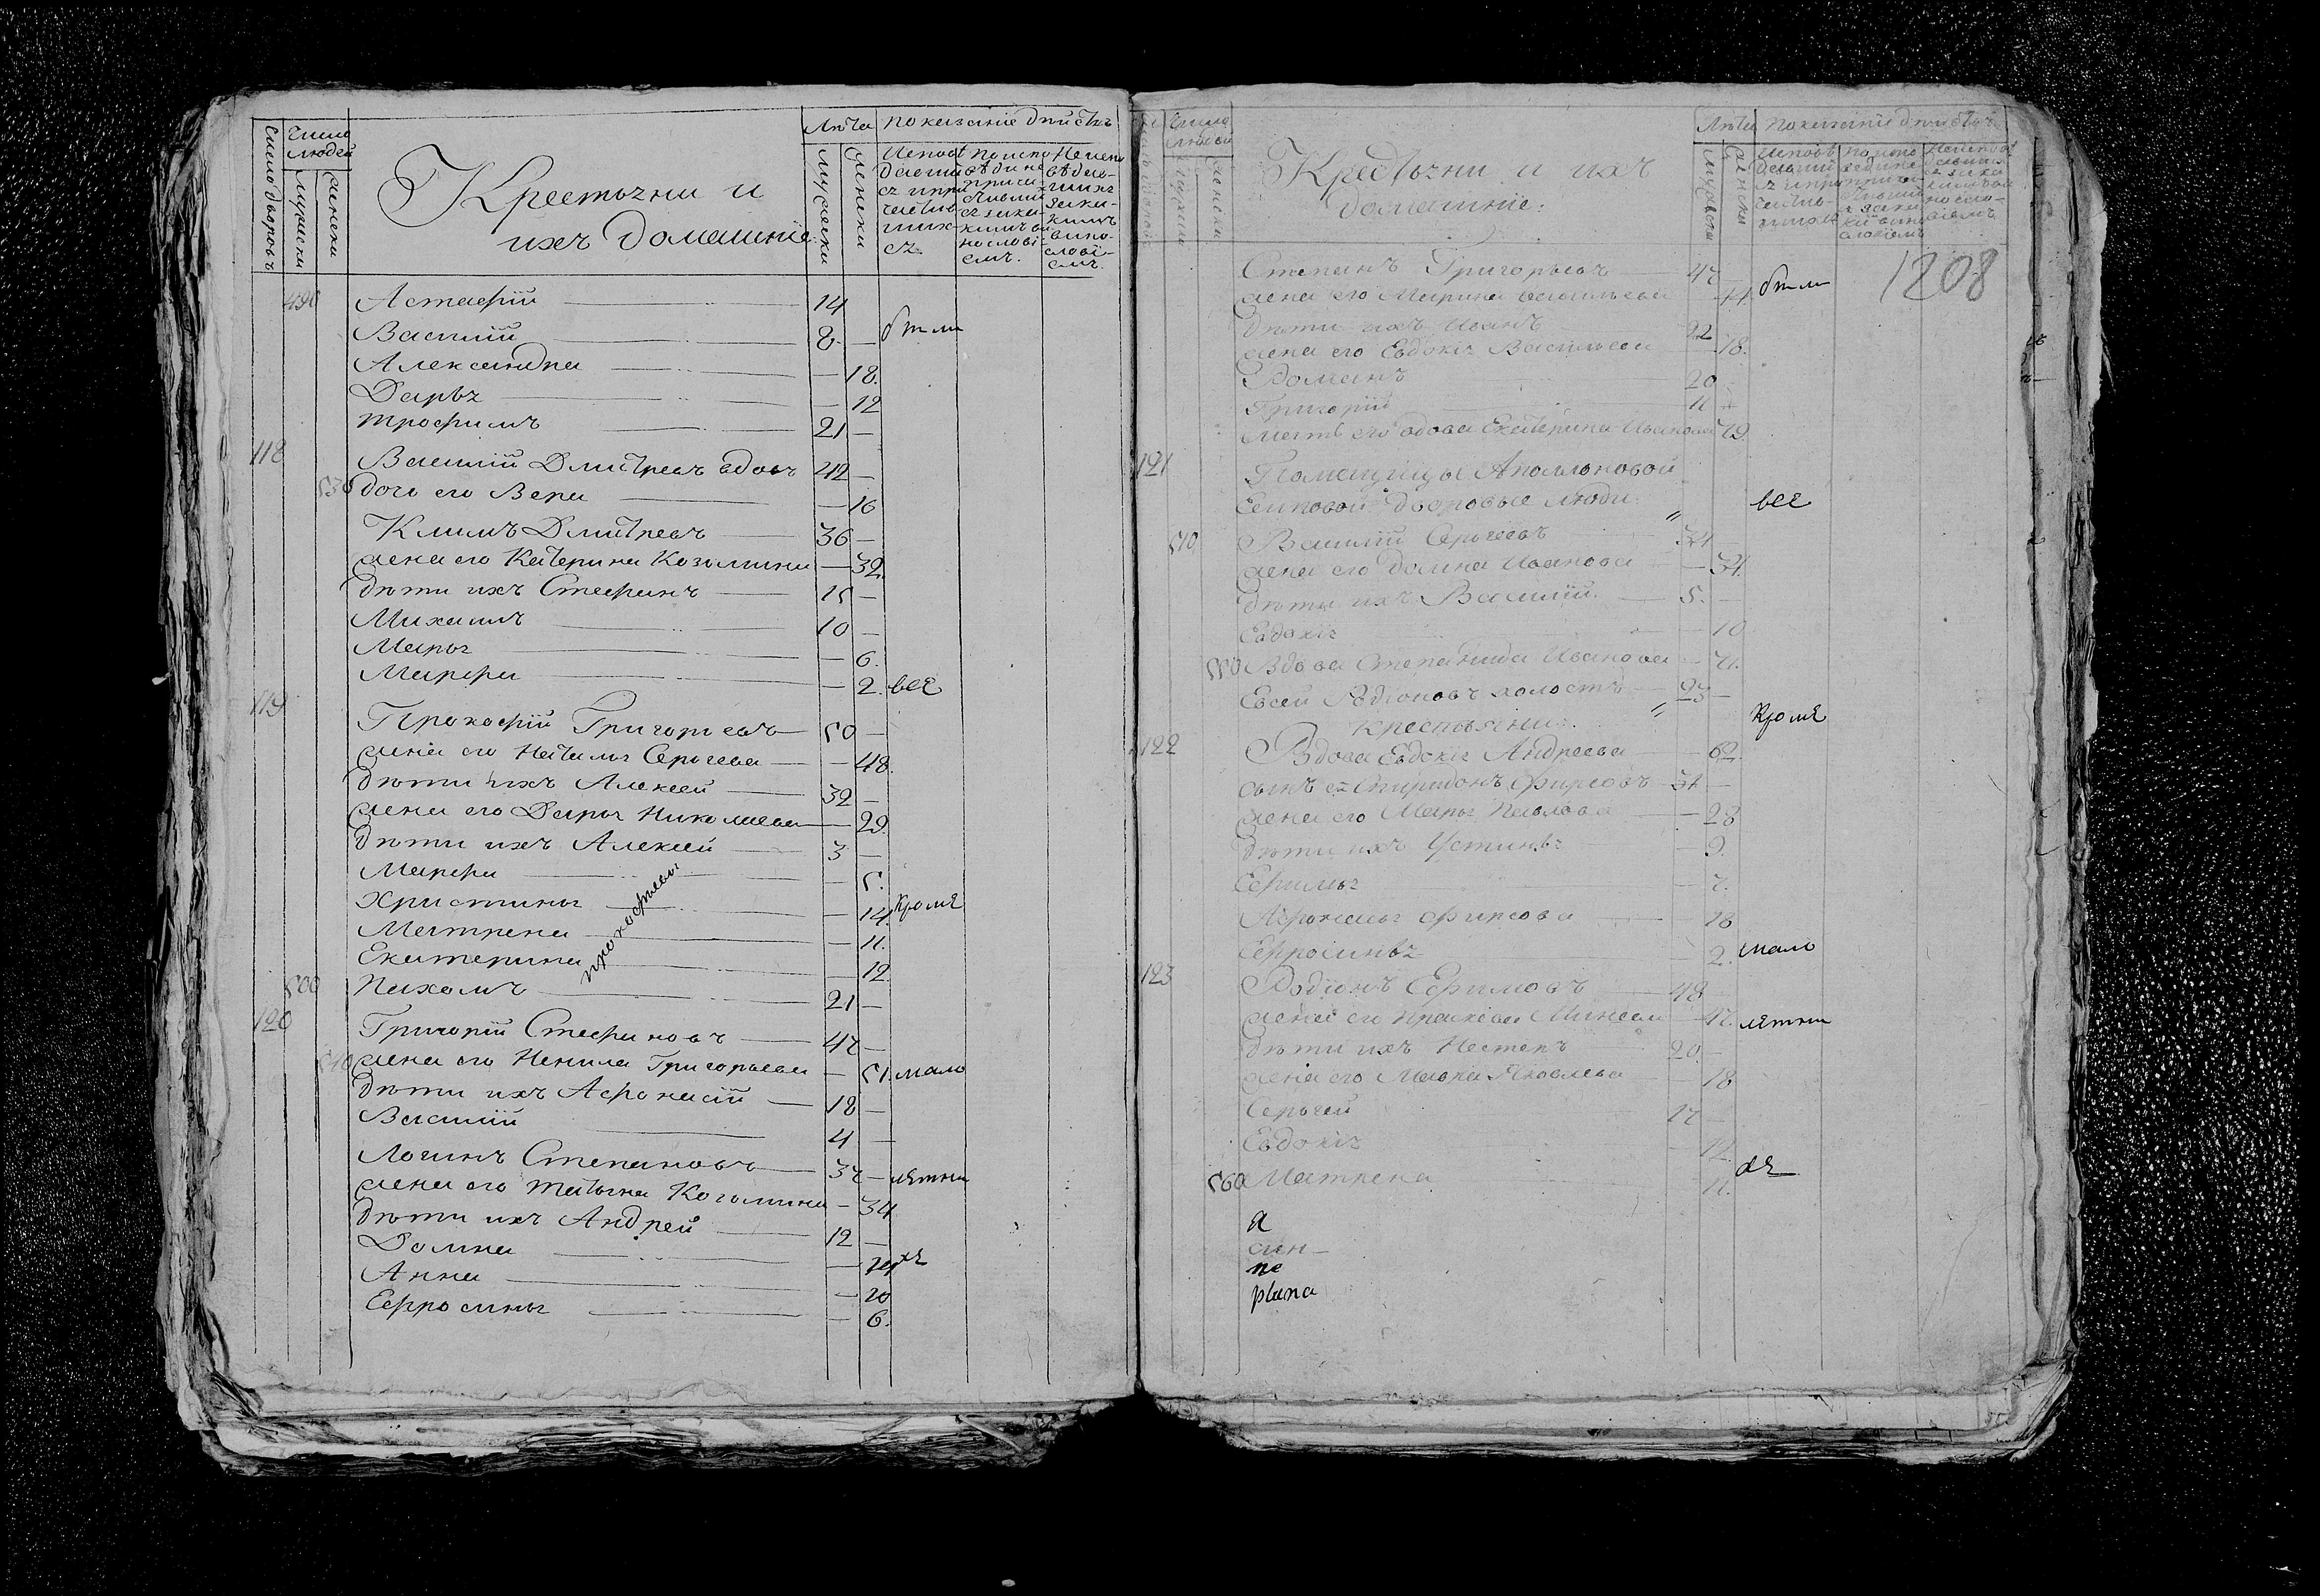 число дворовъ
число людей
мужески
женски
Крестьяни и
ихъ домашнiе
Лѣта
мужски
женски
показанiе дѣйствъ
490
Астафiй 14
были
Василiй 8 —
Александра — 18.
Дарья — 12
Трофимъ 21 —
118
Василiй Дмитревъ вдовъ 42 —
530 дочь его Вера — 16
Климъ Дмитревъ 36 —
жена его Катерина Козмина — 32
дѣти ихъ Стефанъ 15 —
Михаилъ 10 —
Марья — 6.
Марфа — 2. все
119
Прокофiй Григорьевъ 50 —
жена его Наталья Сергеева — 48.
дѣти ихъ Алексей 32 —
жена его Дарья Николаева — 29.
дѣти ихъ Алексей 3 —
Марфа — 5.
Христинья — 14. кроме
Матрена — 11.
прокофьевы
Екатерина — 12
500 Пахомъ 21 —
120
Григорiй Стефановъ 47 —
540 жена его Ненила Григорьева — 51. мало
дѣти ихъ Афонасiй 18 —
Василiй 4 —
Логинъ Степановъ 37 — летни
жена его Татьяна Козмина — 34
дѣти ихъ Андрей 12 —
Домна — 24 хъ
Анна — 20
Ефросинья — 6.
число людей
Крестьяни и ихъ
домашнiе.
Лѣта
показанiе дѣйствъ
1208
Степанъ Григорьевъ 47
жена его Марина Васильева 44 были
дѣти ихъ Иванъ 22
жена его Евдокiя Васильева — 18.
Романъ 20 —
Григорiй 11 —
мать его вдова Екатерина Иванова 79.
121
Помещицы Апольоновой
Есиповой дворовые люди: все
510 Василiй Сергеевъ 34 —
жена его Домна Иванова — 34.
дѣти ихъ Василiй. 5. —
Евдокiя — 10
550 Вдова Степанида Иванова — 71.
Евсей Родiоновъ холостъ 23 —
крестьяни: кроме
122
Вдова Евдокiя Андреева — 62.
сынъ ея Спиридонъ Фирсовъ 34 —
жена его Марья Павлова — 28
дѣти ихъ Устинья — 9.
Ефимья — 7.
Афонасья Фирсова — 18
Ефросинья — 2. мало
123
Родiонъ Ефимовъ 48
жена его Прасковья Минеева 47. летни
дѣти ихъ Нестеръ 20 —
жена его Мавра Яковлева — 18
Сергей 17 —
Евдокiя — 12.
560 Матрена — 11. хъ